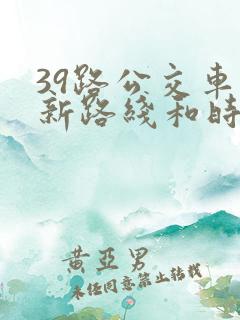 39路公交车
新路线和时
黄亚男
未经同意禁止转载